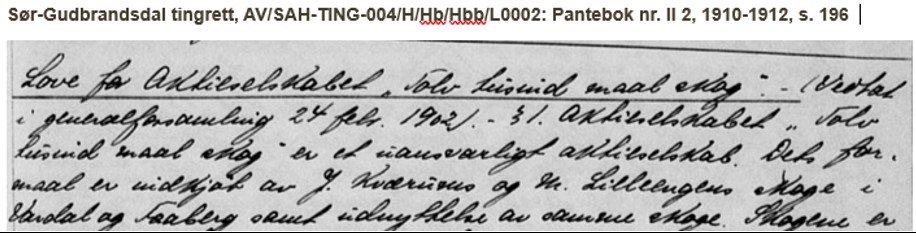 Sør-Gudbrandsdal tingrett, AV/SAH-TING-004/H/Hb/Hbb/L0002: Pantebok nr. II 2, 1910-1912, s. 196
Love for Aktieselskabet "Tolv tusind maal skog". - (Vedtat
i generalforsamling 24 febr. 1902). - § 1. Aktieselskabet "Tolv
tusind maal skog" er et uansvarligt aktieselskab. Dets for-
maal er indkjøb av J. Kværums og M. Lilleengens skoge i
Vardal og Faaberg samt udnyttelse av samme skoge. Skogene er